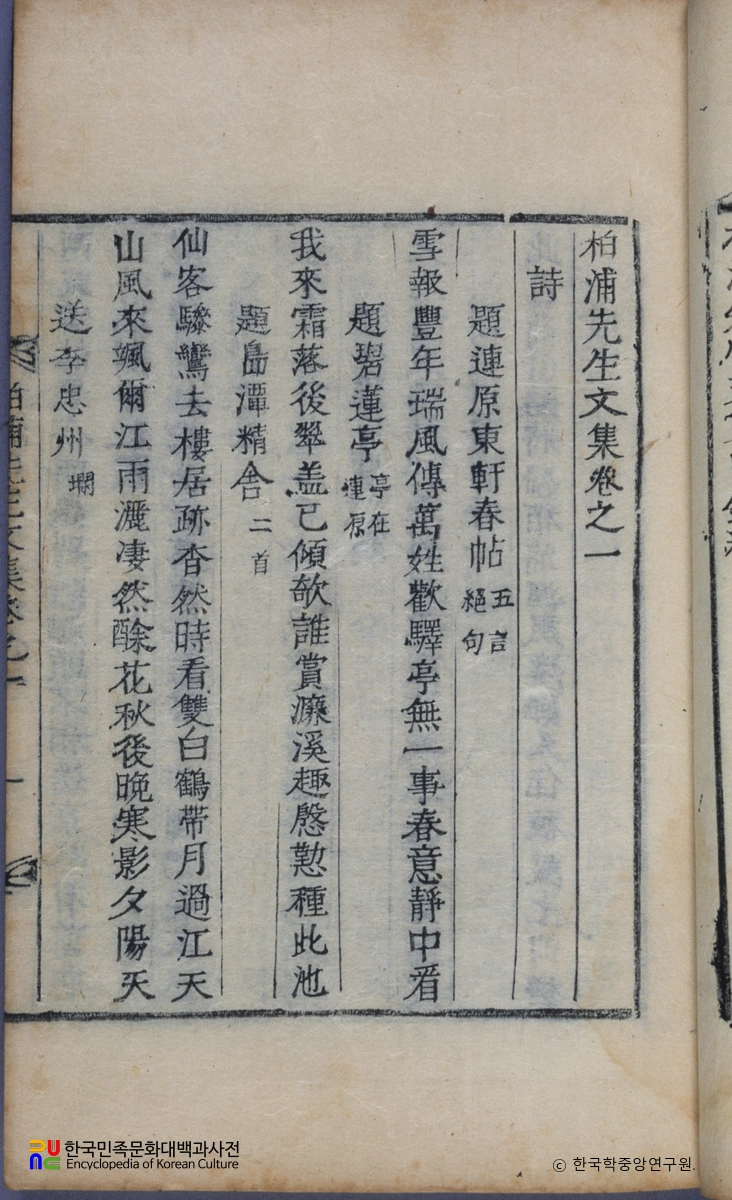 柏浦先生文集卷之一
詩
題連原東軒春帖 五言絕句
雪報豐年瑞風傳萬姓歡驛亭無一事春意靜中看
題碧蓮亭 亭在連原
我來霜落後翠盖已傾欹誰賞濂溪趣慇懃種此池
題島潭精舍 二首
仙客驂鸞去樓居跡杳然時看雙白鶴帶月過江天
山風來颯爾江雨灑凄然餘花秋後晩寒影夕陽天
送李忠州
柏浦先生文集卷之一
一
한국민족문화대백과사전
Encyclopedia of Korean Culture
© 한국학중앙연구원.